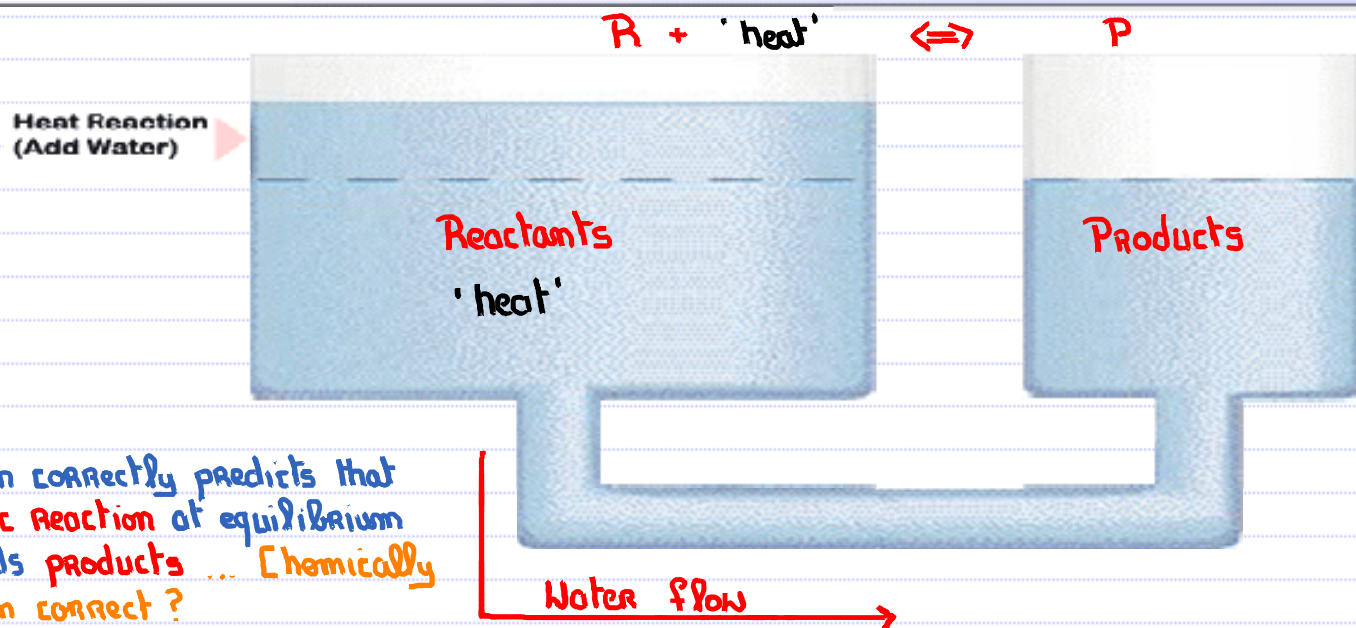 R + 'heat' <=> P
Heat Reaction
(Add Water)
Reactants
Products
'heat'
n correctly predicts that
c Reaction at equilibrium
ds products ... Chemically
n correct ?
Water flow